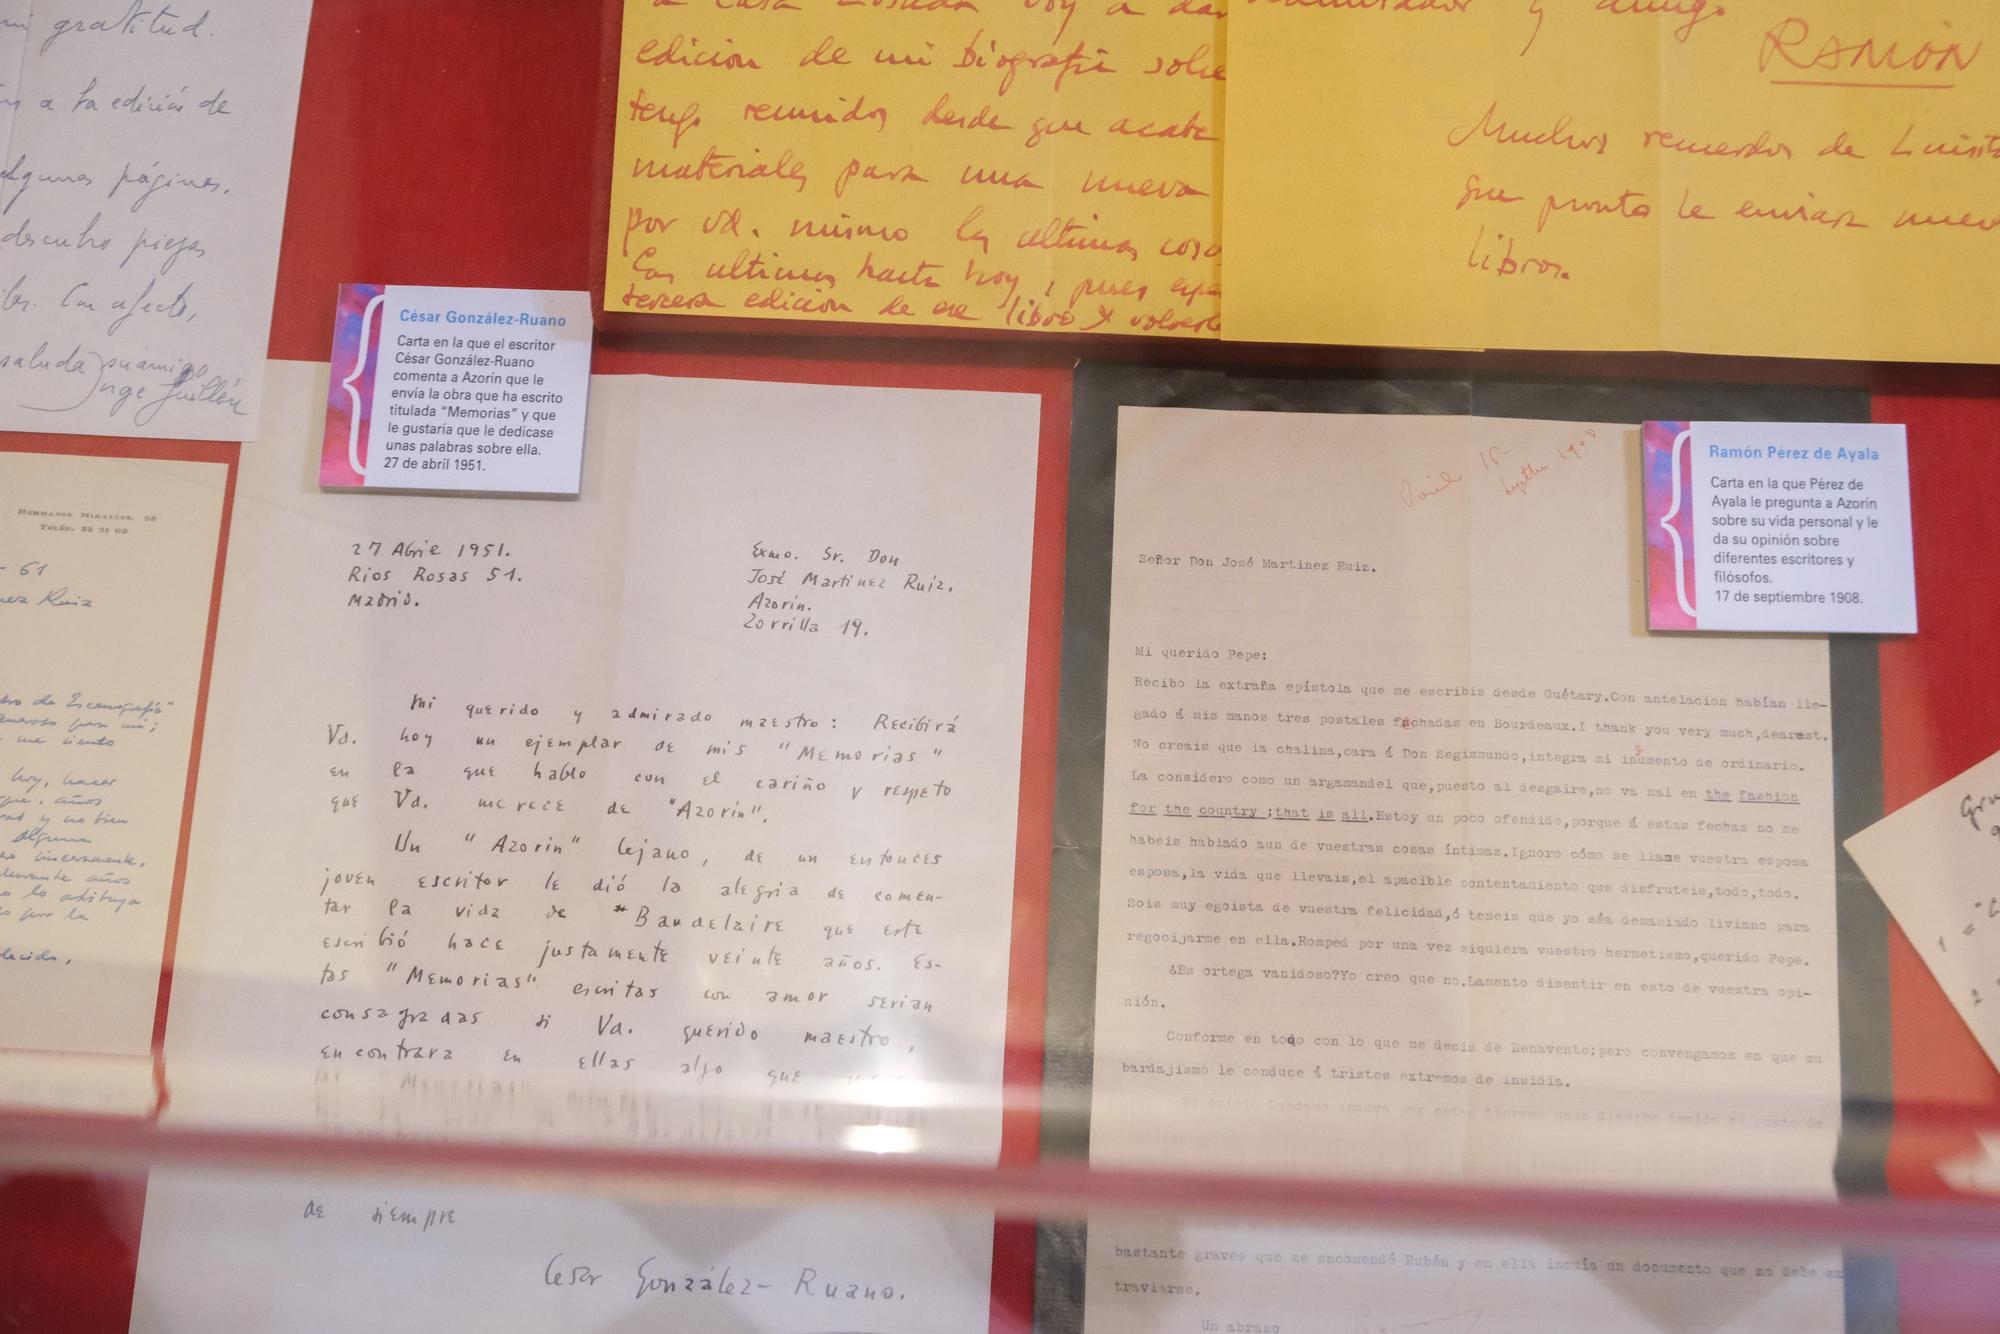 mi gratitud.
a la edición de
algunas páginas.
descubro piezas
Con afecto,
saluda su amigo
Jorge Guillén
a Casa Losada voy a dar
edicion de mi biografia sobre
tengo reunidos desde que acabe
materiales para una nueva
por vd. mismo las ultimas cosas
Las ultimas hasta hoy, pues
tercera edicion de ese libro y
y amigo
RAMÓN
Muchos recuerdos de Luisita
que pronto le enviara
libros.
César González-Ruano
Carta en la que el escritor
César González-Ruano
comenta a Azorín que le
envía la obra que ha escrito
titulada “Memorias” y que
le gustaría que le dedicase
unas palabras sobre ella.
27 de abril 1951.
Ramón Pérez de Ayala
Carta en la que Pérez de
Ayala le pregunta a Azorín
sobre su vida personal y le
da su opinión sobre
diferentes escritores y
filósofos.
17 de septiembre 1908.
HERMANOS MIRALLES, 36
TELÉF. 35 21 03
- 61
Ruiz
de Escenografía"
me siento
hoy, hacer
años
y no bien
alguna
sinceramente,
durante años
lo atribuya
por la
27 Abril 1951.
Rios Rosas 51.
Madrid.
Exmo. Sr. Don
José Martinez Ruiz.
Azorín.
Zorrilla 19.
Mi querido y admirado maestro: Recibirá
Vd. hoy un ejemplar de mis "Memorias"
en la que hablo con el cariño y respeto
que Vd. merece de "Azorín".
Un "Azorin" lejano, de un entonces
joven escritor le dió la alegria de comen-
tar la vida de "Baudelaire que este
escribió hace justamente veinte años. Es-
tas "Memorias" escritas con amor serian
consagradas si Vd. querido maestro,
encontrara en ellas algo que
de siempre
César González-Ruano.
15-
1908
Señor Don José Martinez Ruiz.
Mi querido Pepe:
Recibo la extraña epístola que me escribis desde Guétary.Con antelacion habían lle-
gado á mis manos tres postales fechadas en Bourdeaux.I thank you very much,dearest.
No creais que la chalina,cara á Don Segismundo,integra mi inumento de ordinario.
La considero como un argamandel que,puesto al desgaire,no va mal en the fashion
for the country ;that is all.Estoy un poco ofendido,porque á estas fechas no me
habeis hablado aun de vuestras cosas íntimas.Ignoro cómo se llame vuestra esposa
esposa,la vida que llevais,el apacible contentamiento que disfruteis,todo,todo.
Sois muy egoista de vuestra felicidad,ó temeis que yo séa demasiado liviano para
regocijarme en ella.Romped por una vez siquiera vuestro hermetismo,querido Pepe.
¿Es ortega vanidoso?Yo creo que no.Lamento disentir en esto de vuestra opi-
nión.
Conforme en todo con lo que me decis de Benavente;pero convengamos en que su
bardajismo le conduce á tristes extremos de insidia.
anduvo por estas tierras unos dias;he tenido el gusto de
bastante graves que me encomendó Rubén y en ella incuía un documento que no debe ex
traviarse.
Un abrazo